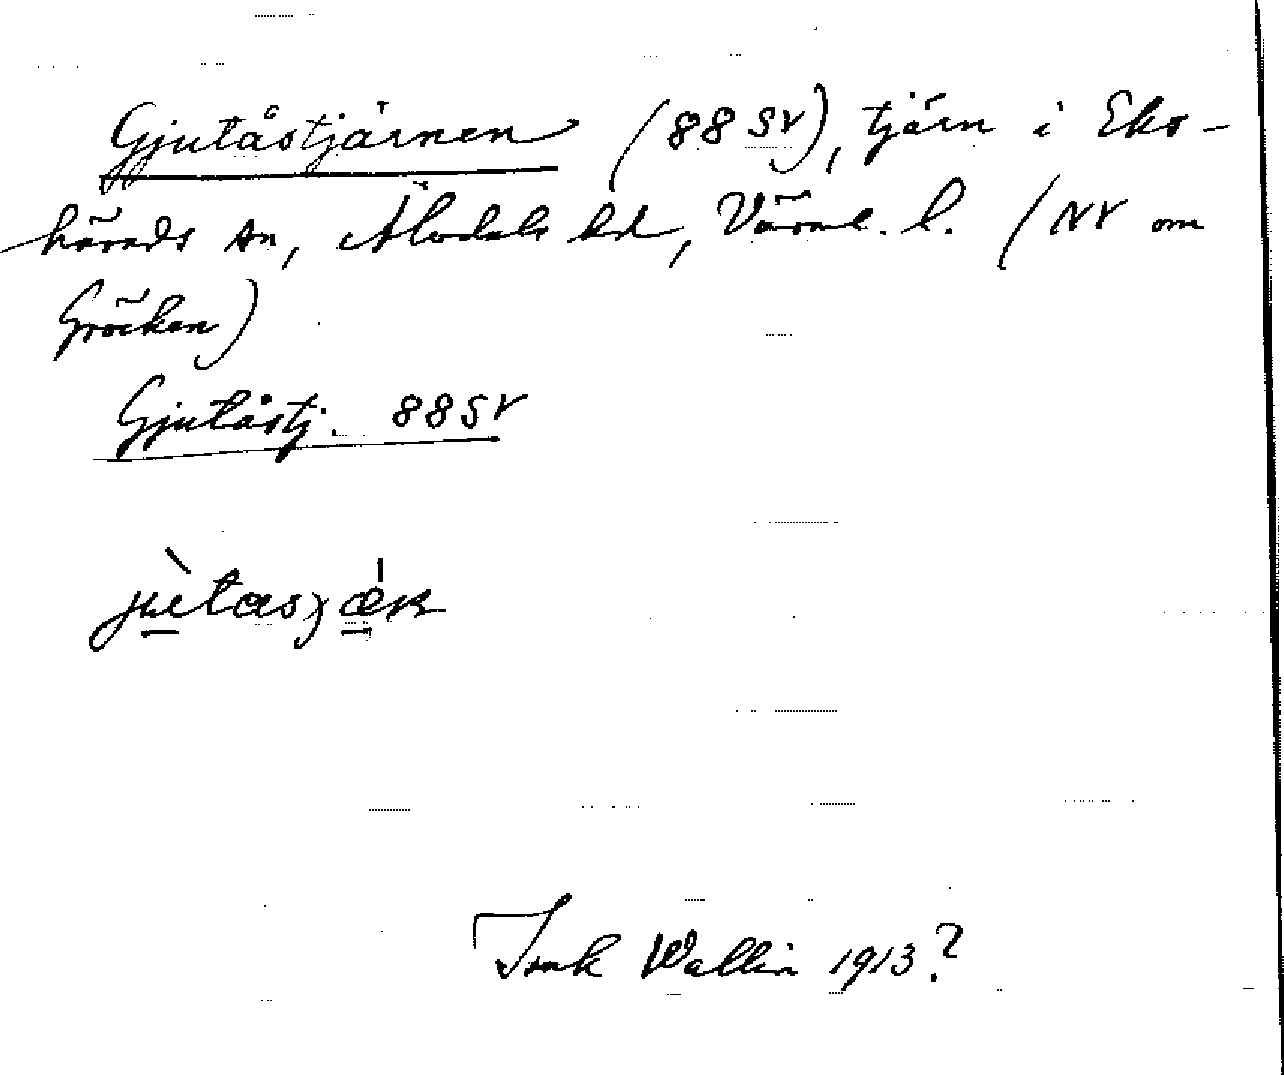 Gjutåstjärnen (88 SV), tjärn i Eks-
härads sn, Älvdals hd, Värml. l. (NV om
Gröcken)
Gjutåstj. 88SV
Isak Wallin 1913?